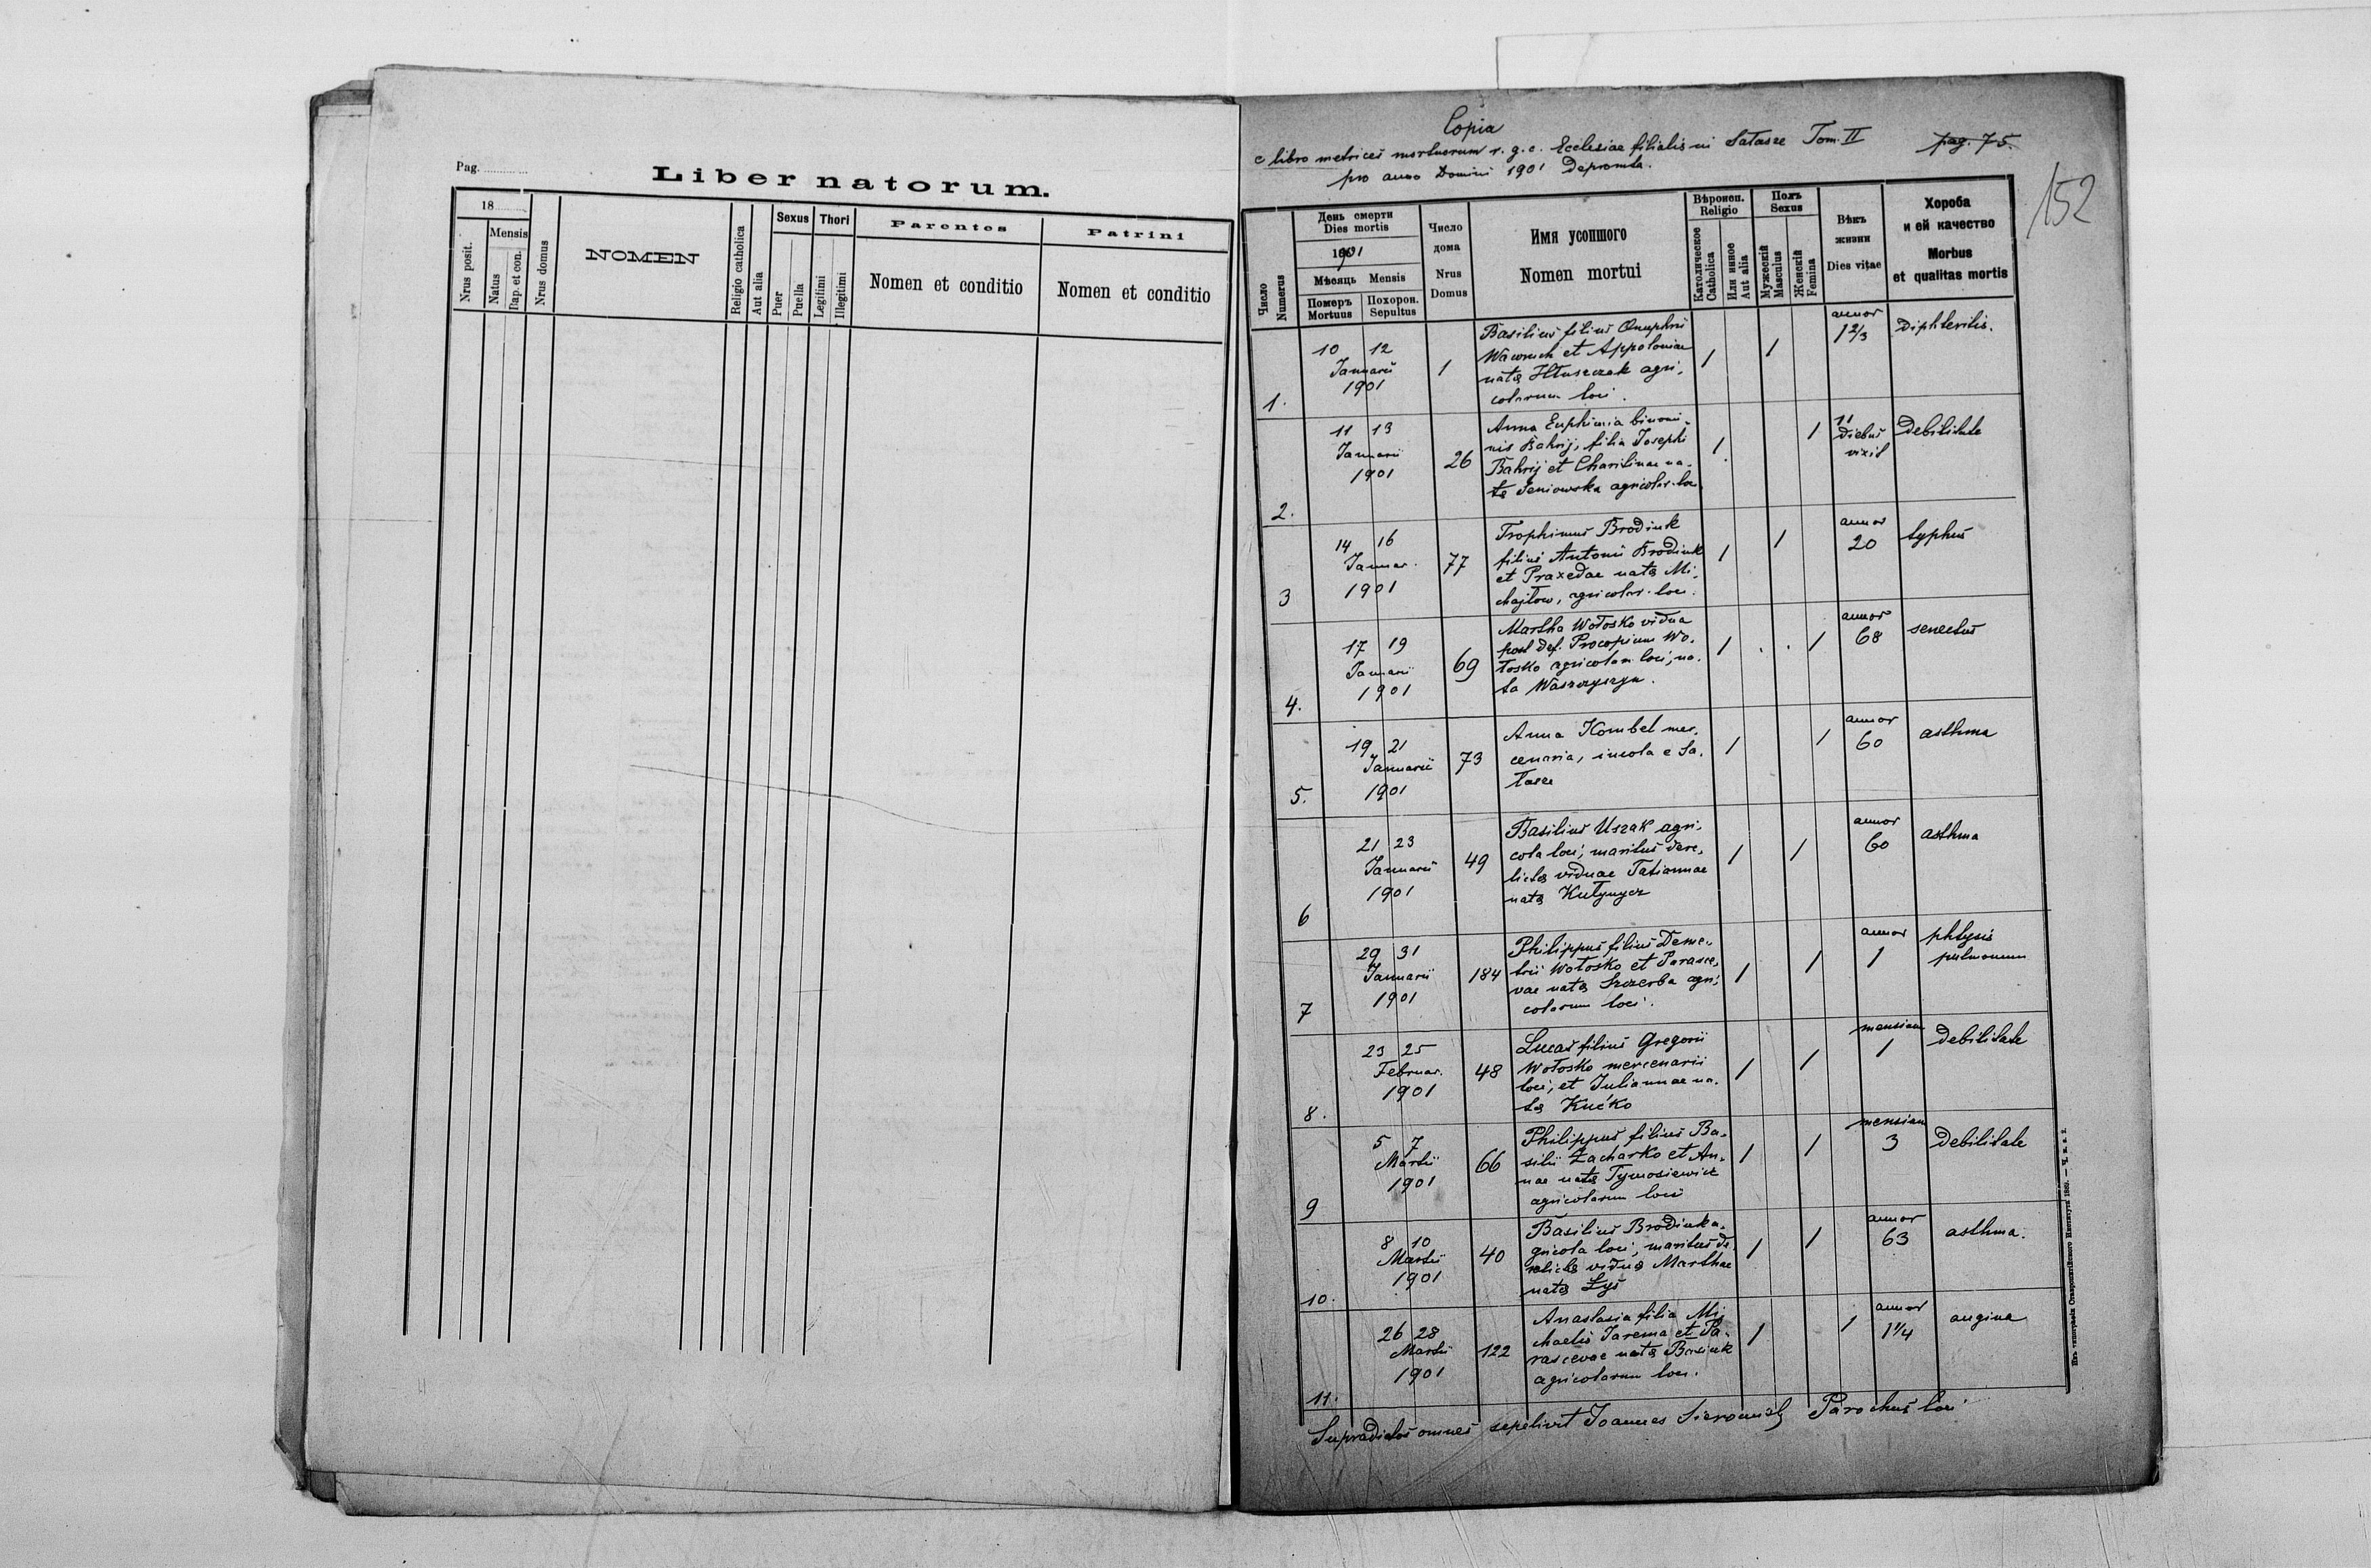 Pag.
Liber natorum.
18
Nrus posit.
Mensis
Natus
Bap. et con.
Nrus domus
NOMEN
Religio catholica
Aut alia
Sexus
Puer
Puella
Thori
Legitimi
Illegitimi
Parentes
Nomen et conditio
Patrini
Nomen et conditio
Copia
e libro metrices mortuorum r. g. c. Ecclesiae filialis in Tom. II pag. 75.
pro anno Domini 1901 depromta.
152
Число
Numerus
День смерти
Dies mortis
1901
Мѣсяць Mensis
Померъ
Mortuus
Похорон.
Sepultus
Число
дома
Nrus
Domus
Имя усопшого
Nomen mortui
Вѣроисп.
Religio
Католическое
Catholica
Или инное
Aut alia
Полъ
Sexus
Мужескій
Masculus
Женскій
Femina
Вѣкъ
жизни
Dies vitae
Хороба
и ей качество
Morbus
et qualitas mortis
1.
10 12
Januarii
1901
1
Basilius filius Onuphrii
et Appoloniae
natae agri-
colarum loci.
1
1
annor
1 2/3
Diphteritis.
2.
11 13
Januarii
1901
26
Anna Euphimia binomi-
nis Bahrij, filia Josephi
Bahrij et Charitinae na-
ta Seniowska agricolar. loci
1
1
11
diebus
vixit
debilitate
3
14 16
Januar.
1901
77
Trophimus Brodiuk
filius Antonii Brodiuk
et Praxedae nata Mi-
chajłow, agricolar. loci.
1
1
annor
20
typhus
4.
17 19
Januarii
1901
69
Martha Wołosko vidua
post def. Procopium Wo-
łosko agricolam loci, na-
ta
1
1
annor
68
senectus
5.
19 21
Januarii
1901
73
Anna Kombel mer-
cenaria, incola e
1
1
annor
60
asthma
6
21 23
Januarii
1901
49
Basilius Uszak agri-
cola loci, maritus dere-
licta viduae Tatiannae
nata Kułynycz
1
1
annor
60
asthma
7
29 31
Januarii
1901
184
Philippus filius Deme-
trii Wołosko et Parasce-
vae nata Szczerba agri-
colarum loci.
1
1
annor
1
phtysis
pulmonum
8.
23 25
Februar.
1901
48
Lucas filius Gregorii
Wołosko mercenarii
loci, et Juliannae na-
ta Kućko
1
1
mensium
1
debilitate
9
5 7
Martii
1901
66
Philippus filius Ba-
silii Zacharko et An-
nae nata Tymosiewicz
agricolarum loci
1
1
mensium
3
debilitate
10.
8 10
Martii
1901
40
Basilius Brodiuk a-
gricola loci, maritus de-
relicta vidua Marthae
nata Łyś
1
1
annor
63
asthma.
11.
26 28
Martii
1901
122
Anastasia filia Mi-
chaelis Jarema et Pa-
rascevae nata
agricolarum loci.
1
1
annor
1 1/4
angina
Supradictos omnes sepelivit Joannes Parochus loci
Изъ типографіи Ставропигійского Института 1889.